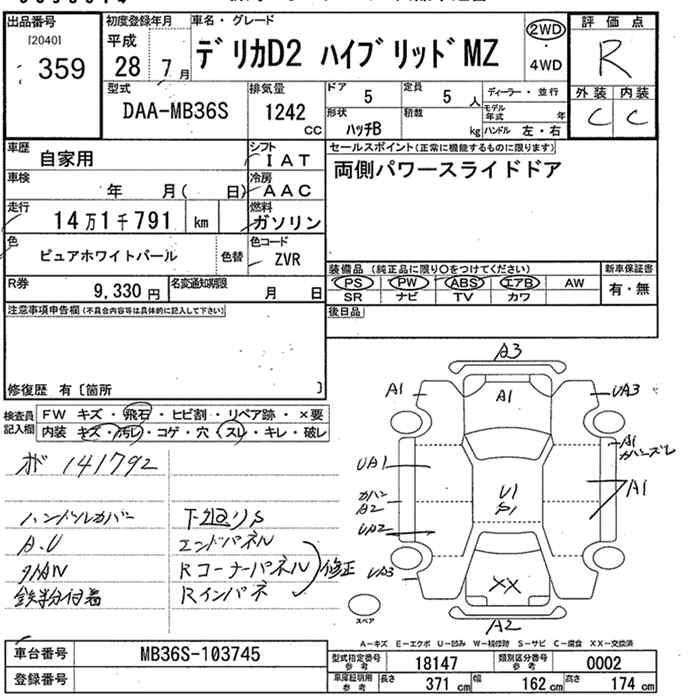 出品番号 初度登録年月 車名・グレード 評価点
[2040]
359
平成 28 7月
デリカD2 ハイブリッドMZ
2WD
・
4WD
R
型式 排気量 ドア 定員 ディーラー・並行 外装 内装
DAA-MB36S 1242 cc 5 5人
形状 積載 モデル年式 年
ハッチB kg ハンドル 左・右
C C
車歴 自家用 シフト IAT セールスポイント(正常に機能するものに限ります)
車検 年 月( 日) 冷房 AAC 両側パワースライドドア
走行 14万1千791 km 燃料 ガソリン
色 ピュアホワイトパール 色替 色コード ZVR
装備品 (純正品に限り○をつけてください) 新車保証書
R券 9,330円 名変通知期限 月 日
PS PW ABS エアB AW 有・無
SR ナビ TV カワ
注意事項申告欄(不具合内容等は具体的に記入して下さい) 後日品
修復歴 有〔箇所 〕
検査員記入欄 FW キズ・飛石・ヒビ割・リペア跡・×要
内装 キズ・汚レ・コゲ・穴・スレ・キレ・破レ
141792
ハンドルカバー 下廻りS
A.U エンドパネル
Rコーナーパネル 修正
鉄粉付着 Rインパネ
A3
A1 A1 UA3
A1
カバーズレ
UA1
U1
S1
A1
A2
UA2
UA3
XX
A2
スペア
A-キズ E-エクボ U-凹み W-補修跡 S-サビ C-腐食 XX-交換済
車台番号 MB36S-103745
型式指定番号参考 18147 類別区分番号参考 0002
登録番号
車庫証明用参考 長さ 371cm 幅 162cm 高さ 174cm